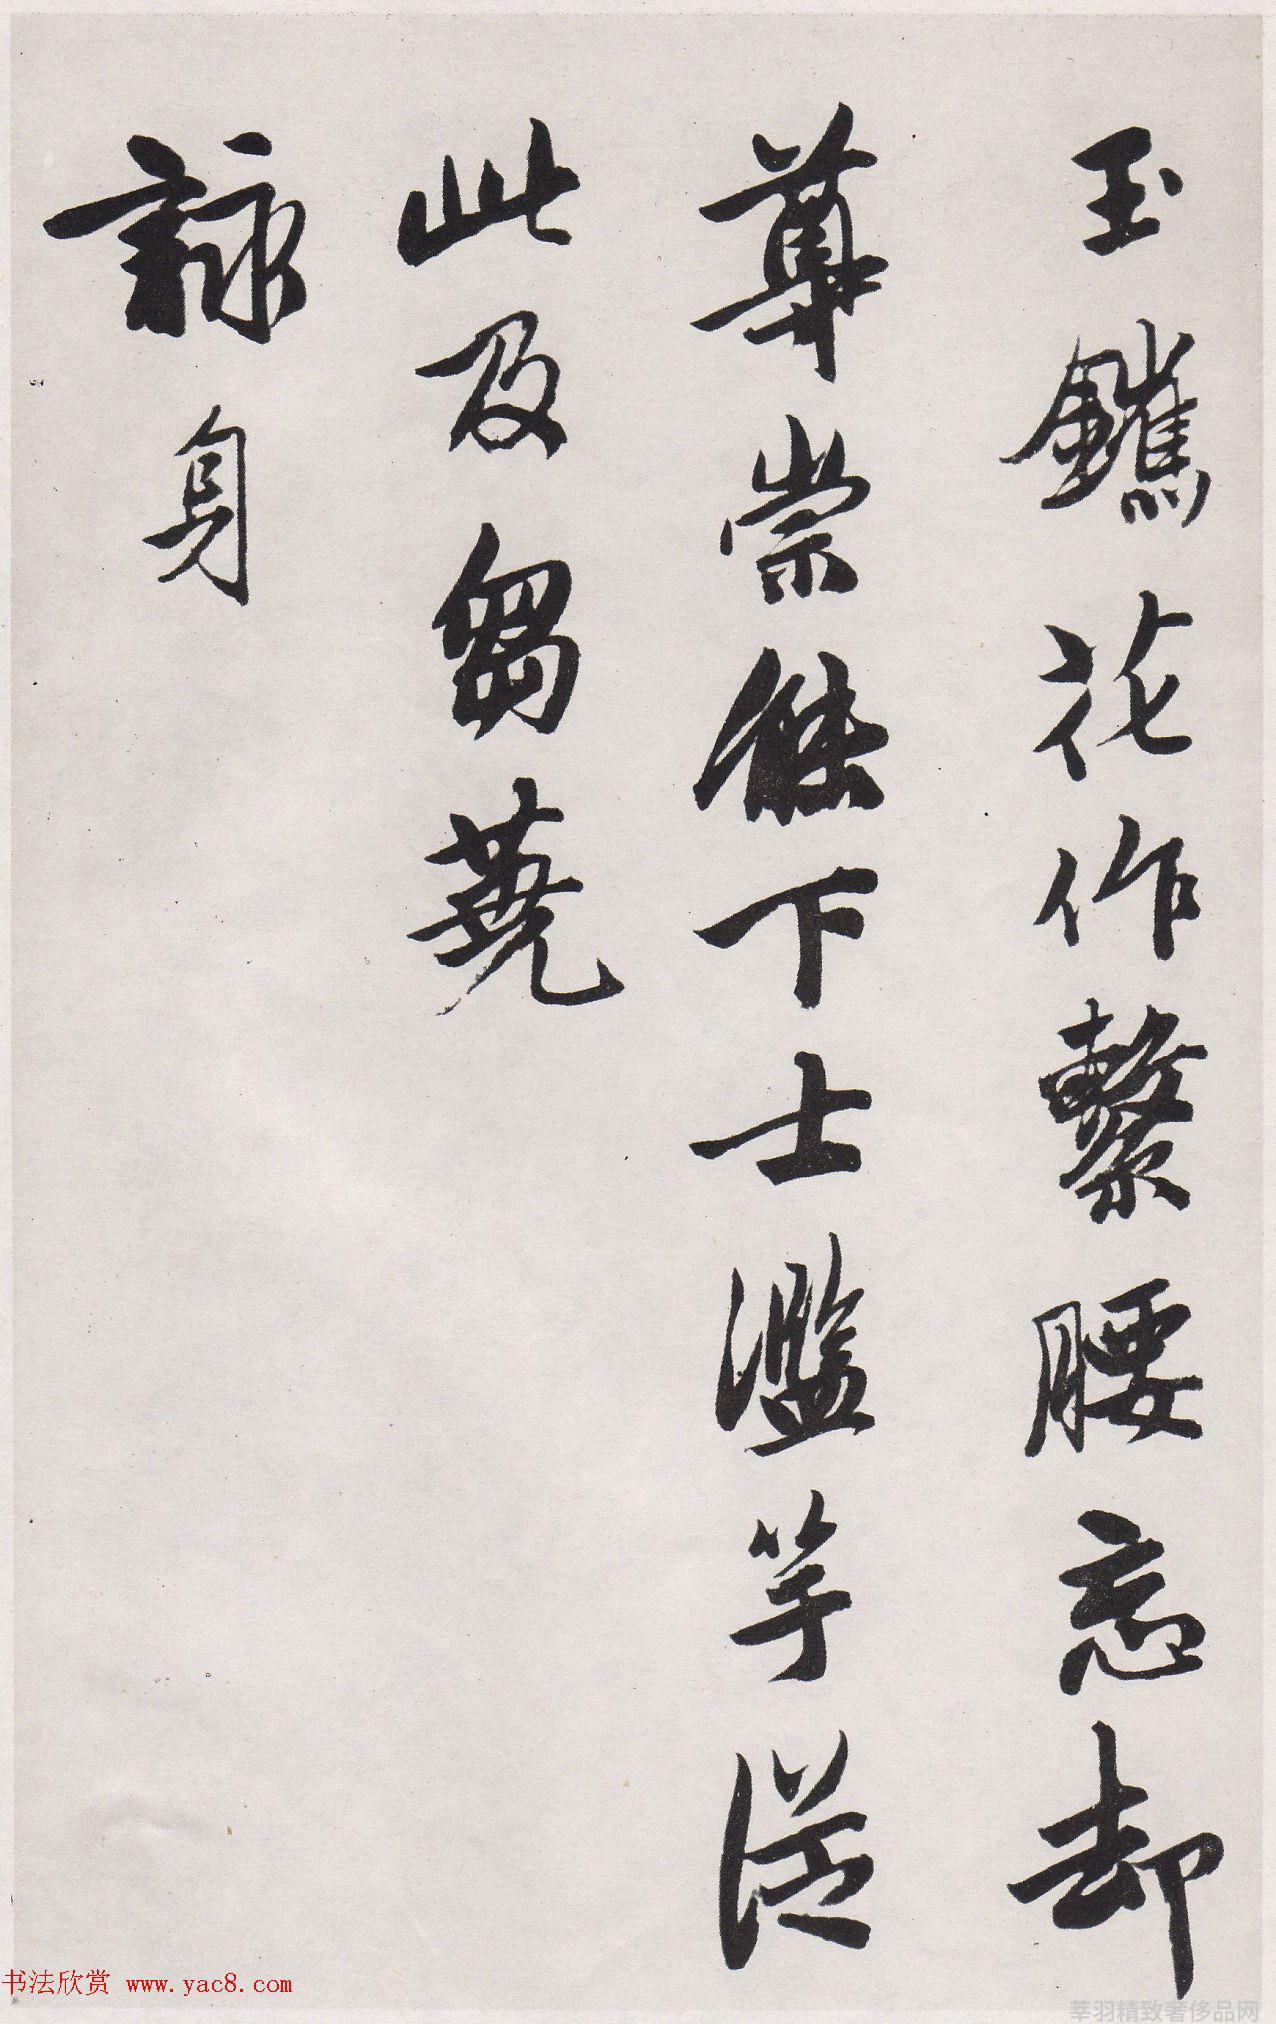 玉鑣花作繫腰忘却
尊崇餘下士濫竽從
此及芻蕘
詠身
书法欣赏 www.yac8.com
莘羽精致奢侈品网